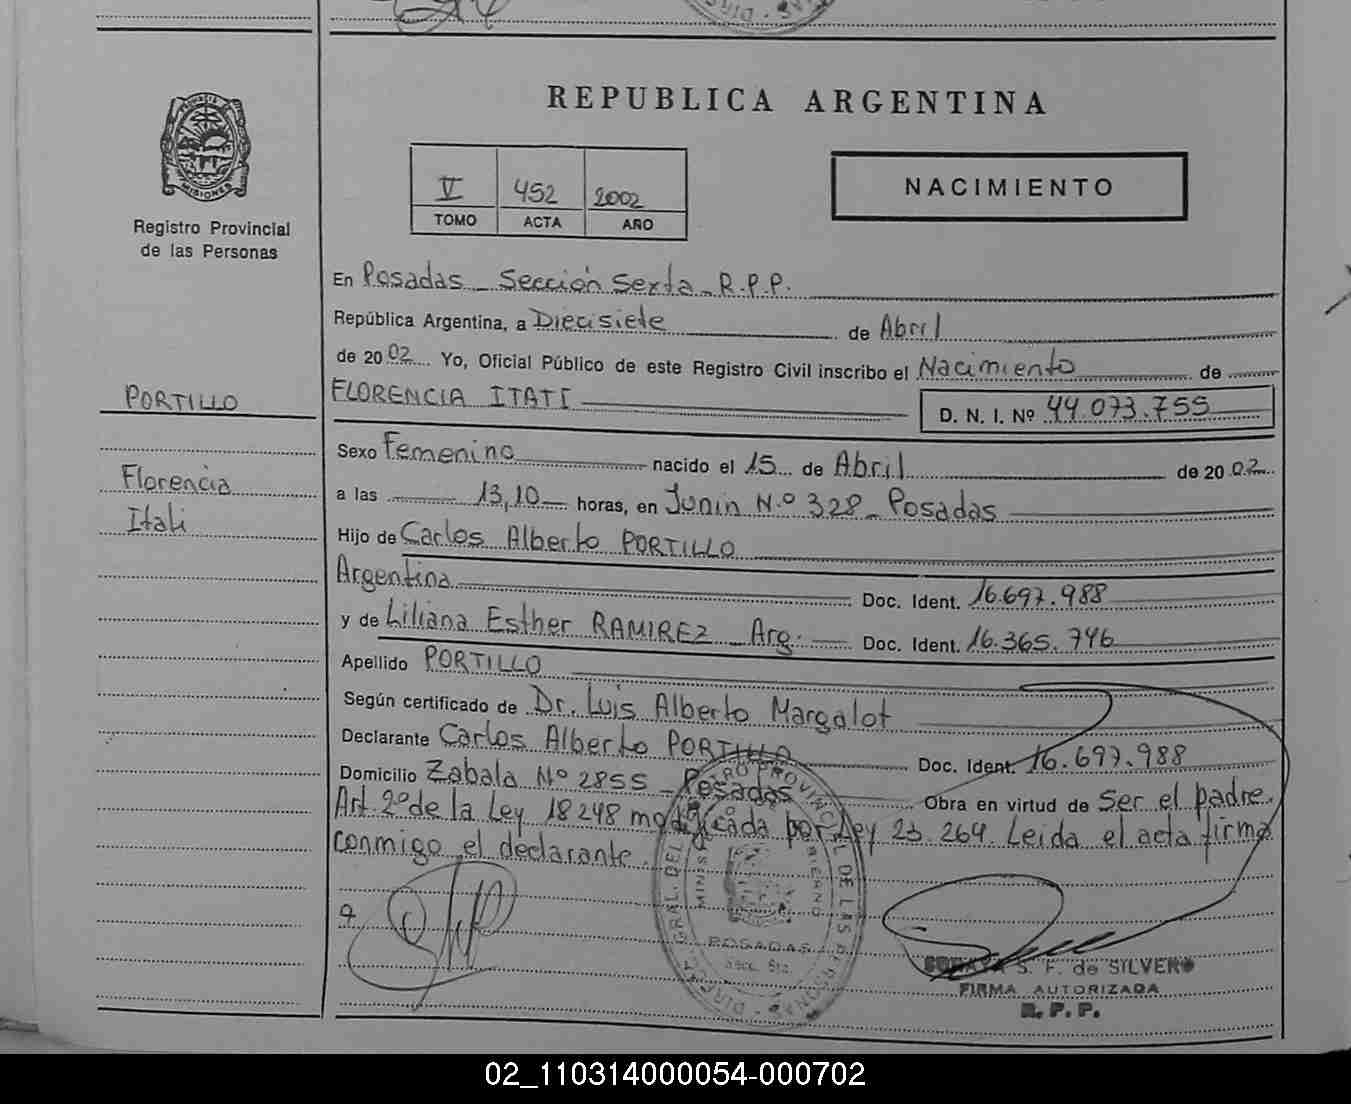 REPUBLICA ARGENTINA
PROVINCIA DE MISIONES
Registro Provincial
de las Personas
V 452 2002
TOMO ACTA AÑO
NACIMIENTO
En Posadas - Sección Sexta - R.P.P.
República Argentina, a Diecisiete de Abril
de 2002 Yo, Oficial Público de este Registro Civil inscribo el Nacimiento de
FLORENCIA ITATI D. N. I. Nº 44.073.755
PORTILLO
Florencia
Itati
Sexo Femenino nacido el 15 de Abril de 2002
a las 13,10 horas, en Junin N.º 328 - Posadas
Hijo de Carlos Alberto PORTILLO
Argentina Doc. Ident. 16.697.988
y de Liliana Esther RAMIREZ - Arg. Doc. Ident. 16.365.746
Apellido PORTILLO
Según certificado de Dr. Luis Alberto Margalot
Declarante Carlos Alberto PORTILLO Doc. Ident. 16.697.988
Domicilio Zabala Nº 2855 - Posadas Obra en virtud de Ser el padre.
Art. 2º de la Ley 18248 modificada por Ley 23.264. Leida el acta firma
conmigo el declarante.
POSADAS
Secc. 6ta
S. F. de SILVERO
FIRMA AUTORIZADA
R. P. P.
02_110314000054-000702